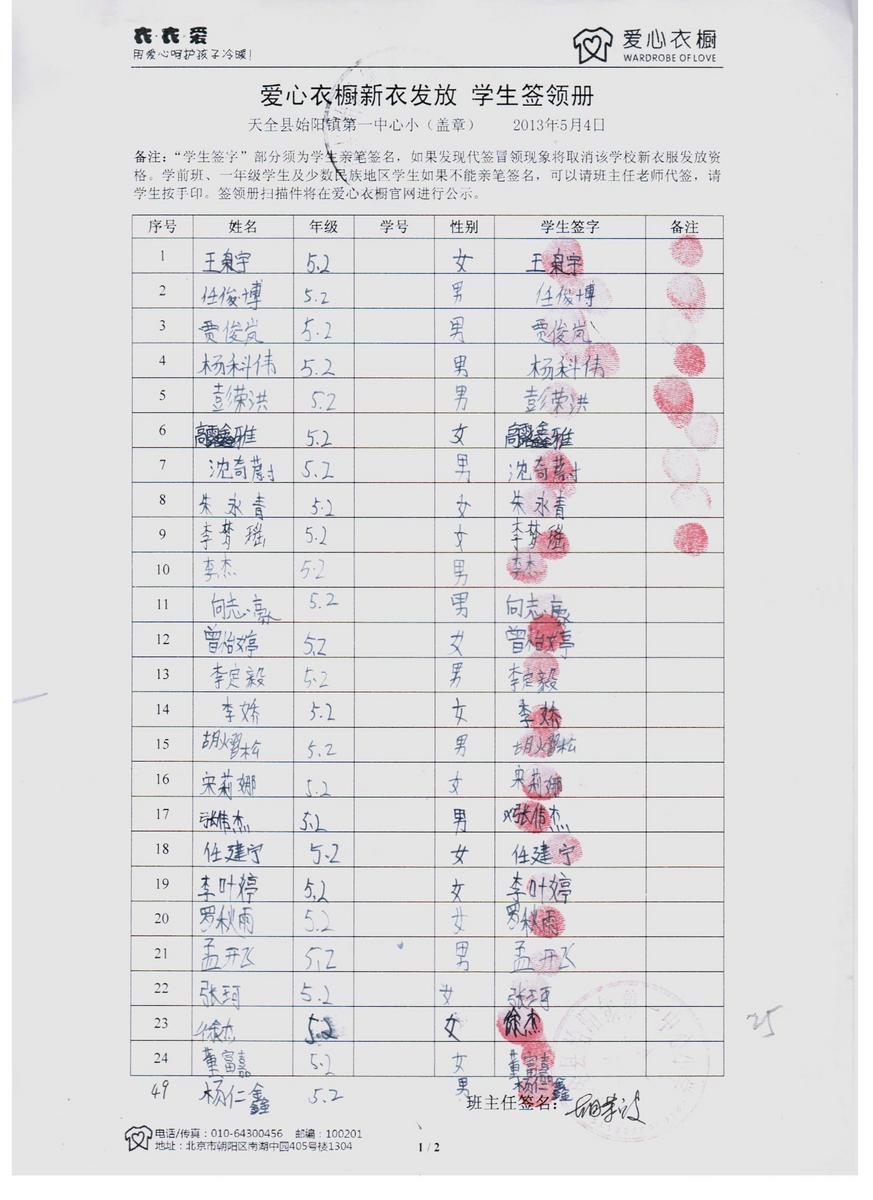 衣·衣·爱
用爱心呵护孩子冷暖!
爱心衣橱
WARDROBE OF LOVE
爱心衣橱新衣发放 学生签领册
天全县始阳镇第一中心小（盖章） 2013年5月4日
备注：“学生签字”部分须为学生亲笔签名，如果发现代签冒领现象将取消该学校新衣服发放资
格。学前班、一年级学生及少数民族地区学生如果不能亲笔签名，可以请班主任老师代签，请
学生按手印。签领册扫描件将在爱心衣橱官网进行公示。
序号 姓名 年级 学号 性别 学生签字 备注
1 王枭宇 5.2 女 王枭宇
2 任俊博 5.2 男 任俊博
3 贾俊岚 5.2 男 贾俊岚
4 杨科伟 5.2 男 杨科伟
5 彭荣洪 5.2 男 彭荣洪
6 5.2 女
7 沈奇蔚 5.2 男 沈奇蔚
8 朱永青 5.2 女 朱永青
9 李梦瑶 5.2 女 李梦瑶
10 李杰 5.2 男 李杰
11 向志豪 5.2 男 向志豪
12 曾怡婷 5.2 女 曾怡婷
13 李定毅 5.2 男 李定毅
14 李娇 5.2 女 李娇
15 胡熠松 5.2 男 胡熠松
16 宋莉娜 5.2 女 宋莉娜
17 张伟杰 5.2 男 张伟杰
18 任建宁 5.2 女 任建宁
19 李叶婷 5.2 女 李叶婷
20 罗秋雨 5.2 女 罗秋雨
21 孟开飞 5.2 男 孟开飞
22 张珂 5.2 女 张珂
23 徐杰 5.2 女 徐杰
25
24 董富嘉 5.2 女 董富嘉
49 杨仁鑫 5.2 男 杨仁鑫
班主任签名：
电话/传真：010-64300456 邮编：100201
地址：北京市朝阳区南湖中园405号楼1304
1 / 2